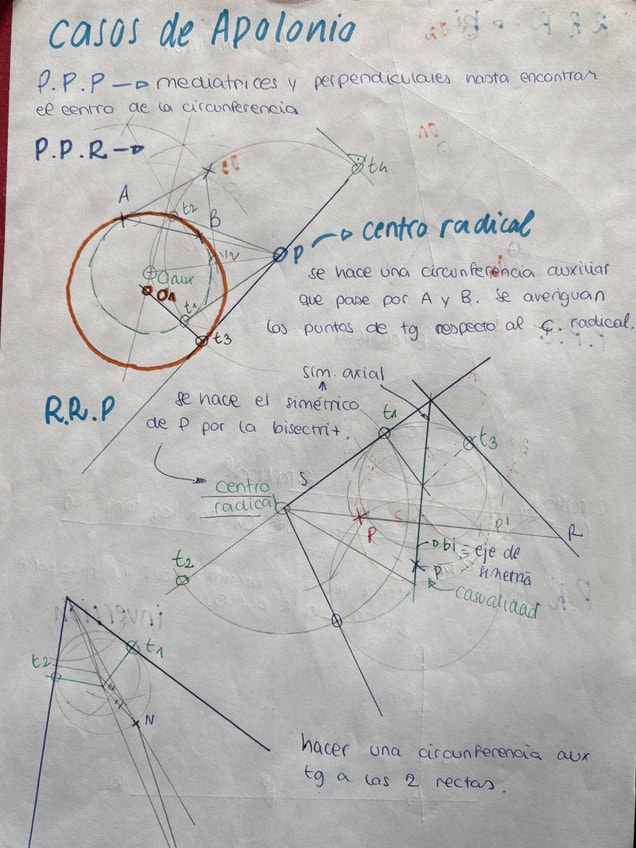 casos de Apolonio
P.P.P → mediatrices y perpendiculares hasta encontrar
el centro de la circunferencia
P.P.R →
t4
A
t2
B
P → centro radical
Oaux
O1
t1
t3
se hace una circunferencia auxiliar
que pase por A y B. Se averiguan
los puntos de tg respecto al c. radical.
sim. axial
R.R.P
se hace el simétrico
de P por la bisectriz.
t1
t3
S
centro
radical
P
P'
R
bi = eje de
simetría
P
casualidad
t2
t1
t2
N
hacer una circunferencia aux
tg a las 2 rectas.